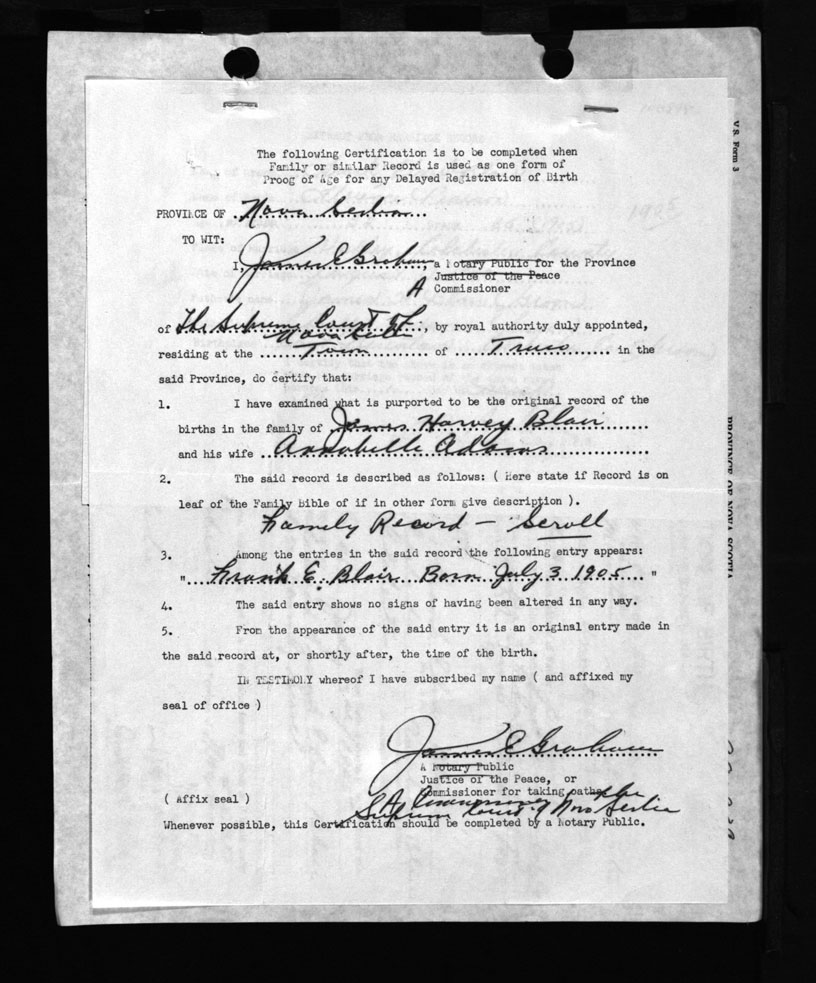 The following Certification is to be completed when
Family or similar Record is used as one form of
Proog of Age for any Delayed Registration of Birth
PROVINCE OF Nova Scotia
TO WIT:
I, James E Graham, a Notary Public for the Province
Justice of the Peace
A Commissioner
of The Supreme Court of Nova Scotia, by royal authority duly appointed,
residing at the Town of Truro in the
said Province, do certify that:
1. I have examined what is purported to be the original record of the
births in the family of James Harvey Blair
and his wife Annabelle Adams
2. The said record is described as follows: ( Here state if Record is on
leaf of the Family Bible of if in other form give description ).
Family Record - Scroll
3. Among the entries in the said record the following entry appears:
"Frank E. Blair Born July 3 1905"
4. The said entry shows no signs of having been altered in any way.
5. From the appearance of the said entry it is an original entry made in
the said record at, or shortly after, the time of the birth.
IN TESTIMONY whereof I have subscribed my name ( and affixed my
seal of office )
James E Graham
A Notary Public
Justice of the Peace, or
Commissioner for taking oaths
( Affix seal ) A Commissioner of the
Supreme Court of Nova Scotia
Whenever possible, this Certification should be completed by a Notary Public.
V.S. Form 3
PROVINCE OF NOVA SCOTIA
1905